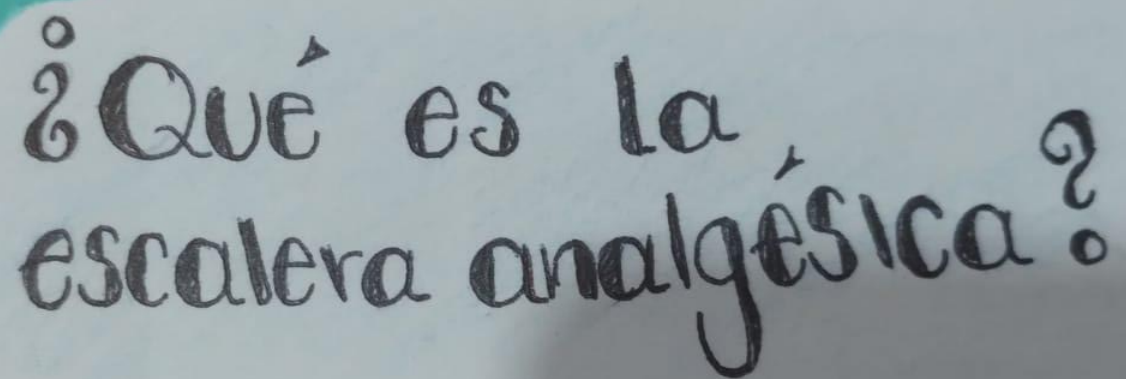 ¿Qué es la
escalera analgésica?